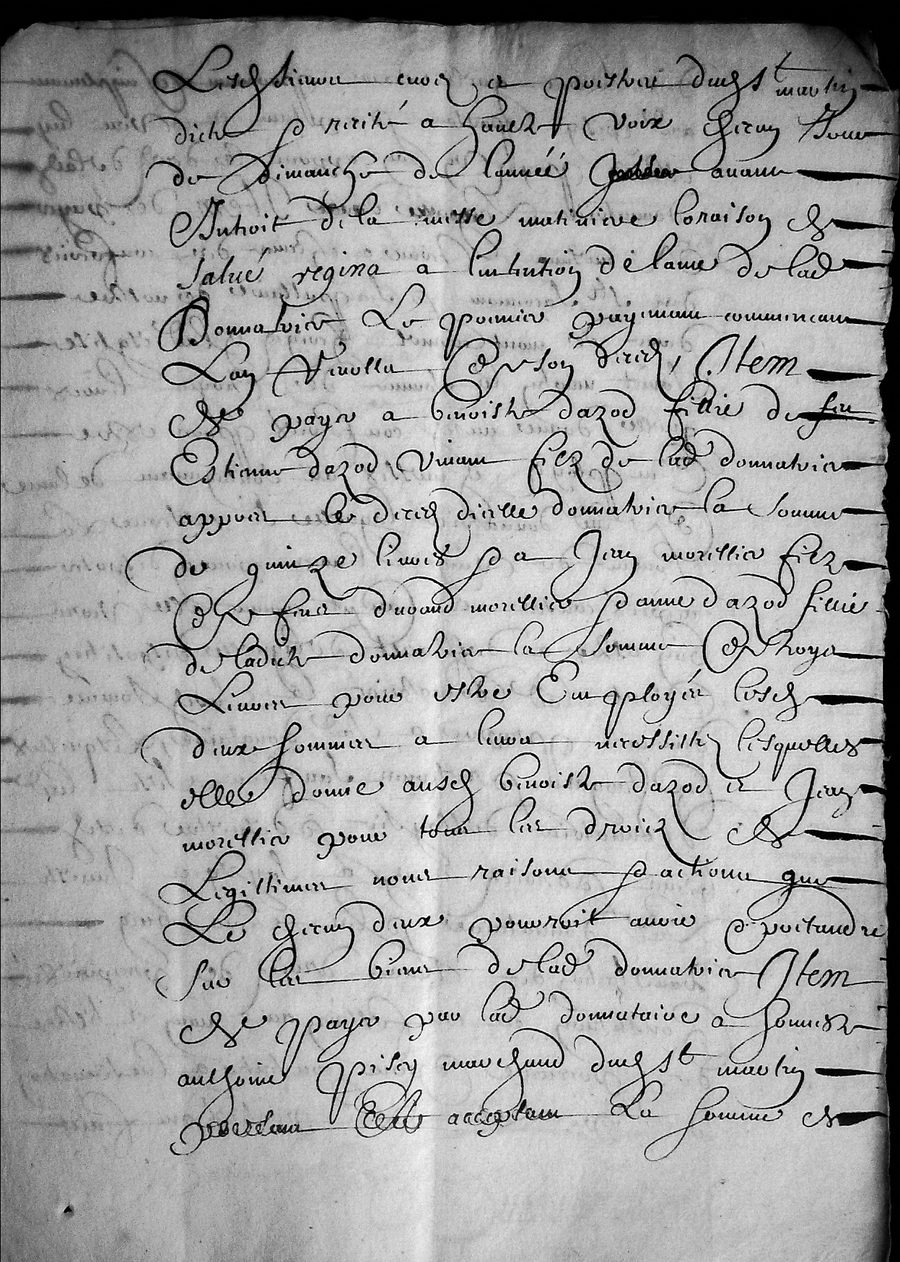 Lesd sieurs cures et pbres dud St martin
dire & recite a haulte voix chacun Jour
de dimanche de lannee avant
Introit de la messe matiniere loraison de
salve regina a lintention de lame de lad
Donnatrice Le premier payement commencant
Lan revollu de son deces, Item
de payer a benoiste dazod fillie de feu
Estienne dazod vivant filz de lad donnatrice
appres le deces dicelle donnatrice la somme
de quinze livres & a Jean morellier filz
de feus durand morellier & anne dazod fillie
de ladicte donnatrice la somme de troys
Livres pour estre Employes lesd
deux sommes a leurs necessittes lesquelles
elle donne ausd benoiste dazod et Jean
morellier pour tous les droicz de
Legittimes noms raisons & actions que
Le chacun deux pourroit avoir & pretandre
sur les biens de lad donnatrice Item
de payer par lad donnataire a honneste
anthoine pisey marchand dud St martin
present acceptant La somme de